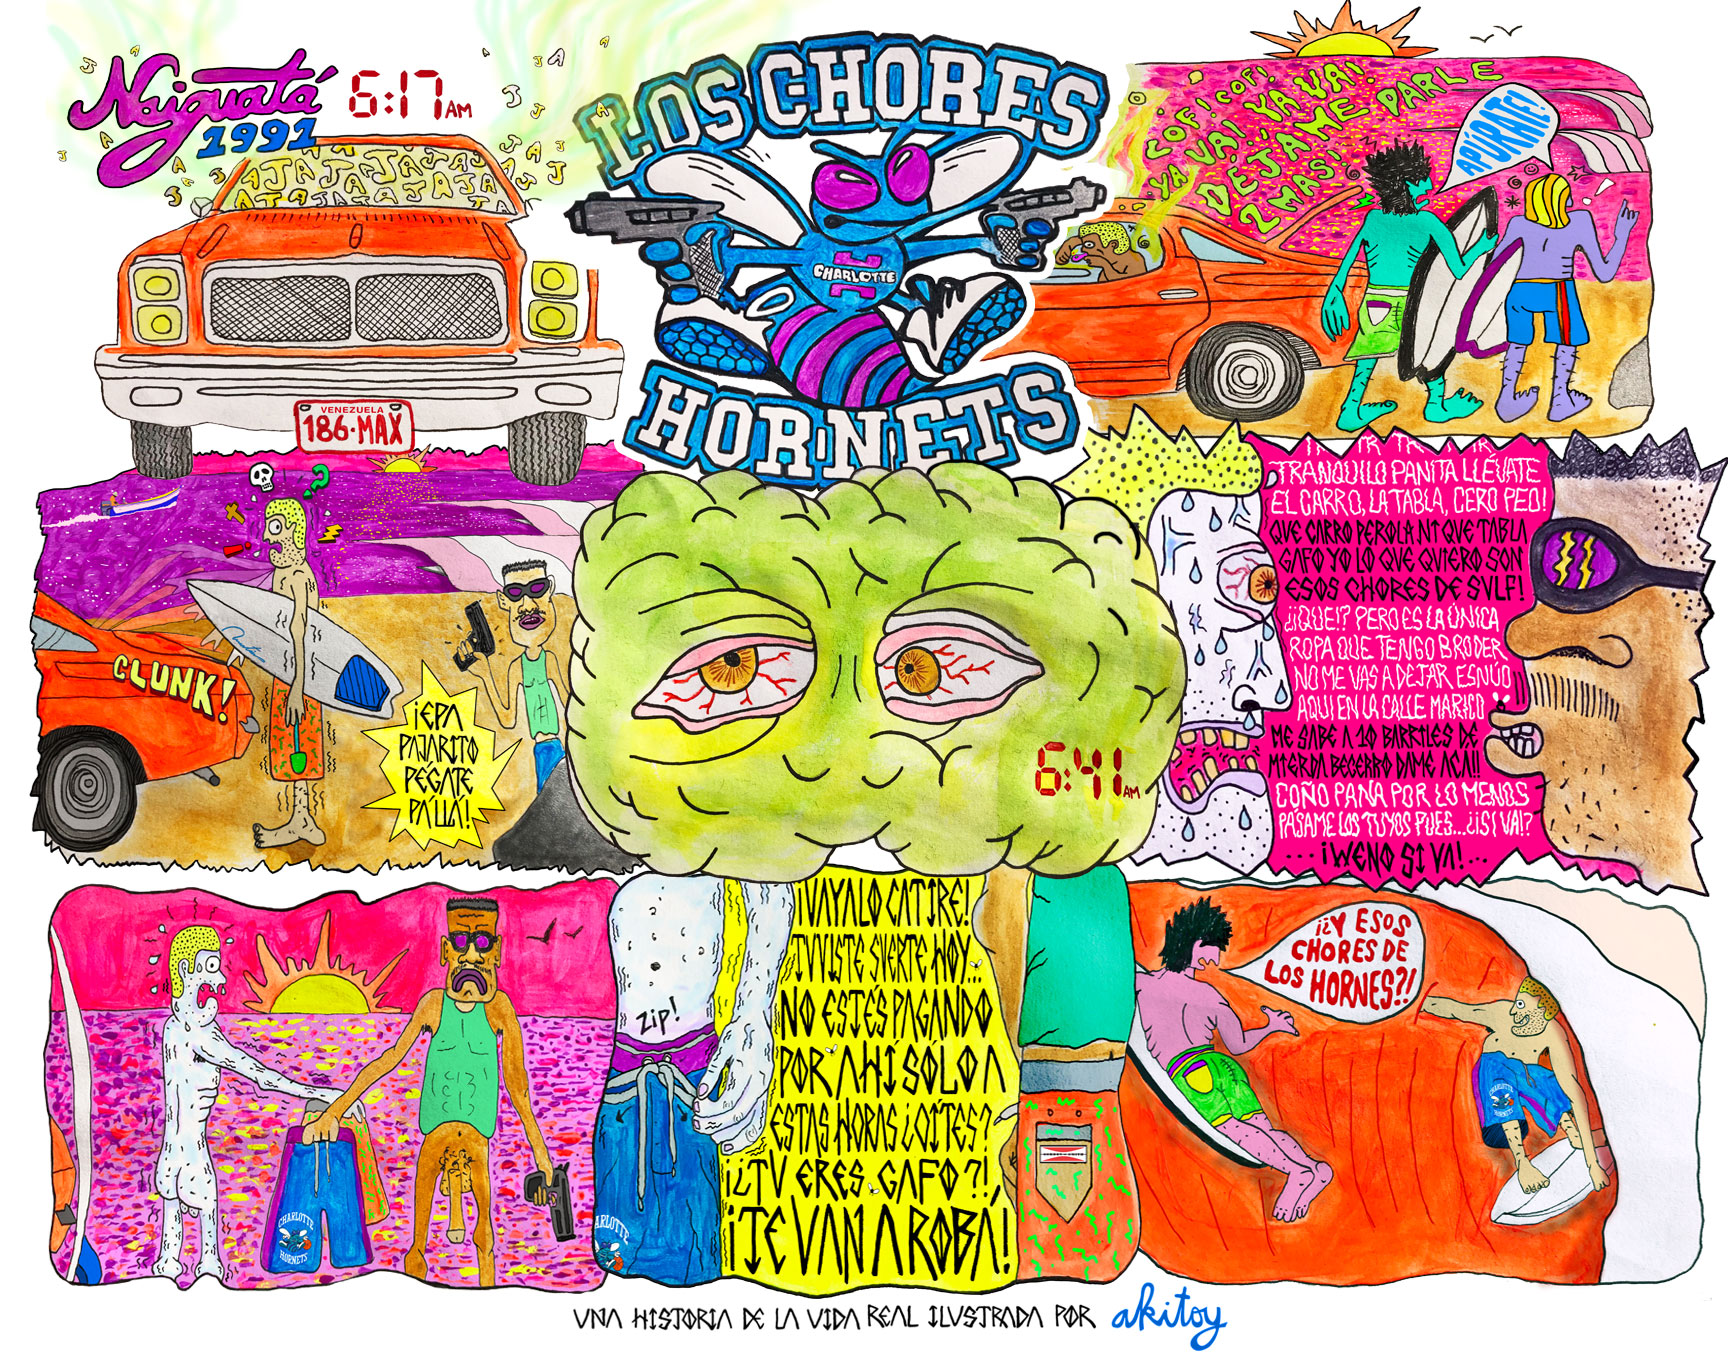 Naiguatá
1991
6:17 AM
LOS CHORES
HORNETS
CHARLOTTE
VENEZUELA
186·MAX
COF! COF!
YA VA! YA VA! YA VA!
DÉJAME DARLE
2 MAS!
APÚRATE!
CLUNK!
¡EPA
PAJARITO
PÉGATE
PA'LLÁ!
6:41 AM
TRANQUILO PANITA LLÉVATE
EL CARRO, LA TABLA, CERO PEO!
QUE CARRO PEROLA NI QUE TABLA
GAFO YO LO QUE QUIERO SON
ESOS CHORES DE SULF!
¡¿QUE!? PERO ES LA ÚNICA
ROPA QUE TENGO BRODER
NO ME VAS A DEJAR ESNÚO
AQUI EN LA CALLE MARICO
ME SABE A 10 BARRILES DE
MIERDA BECERRO DAME ACA!!
COÑO PANA POR LO MENOS
PÁSAME LOS TUYOS PUES...¿¡SI VA!?
....¡WENO SI VA!...
CHARLOTTE
HORNETS
ZIP!
¡VAYALO CATIRE!
TUVISTE SUERTE HOY...
NO ESTÉS PAGANDO
POR AHÍ SÓLO A
ESTAS HORAS ¿OÍTES?
¡¿TU ERES GAFO?!
¡TE VAN A ROBÁ!
¡¿Y ESOS
CHORES DE
LOS HORNES?!
CHARLOTTE
HORNETS
UNA HISTORIA DE LA VIDA REAL ILUSTRADA POR akitoy